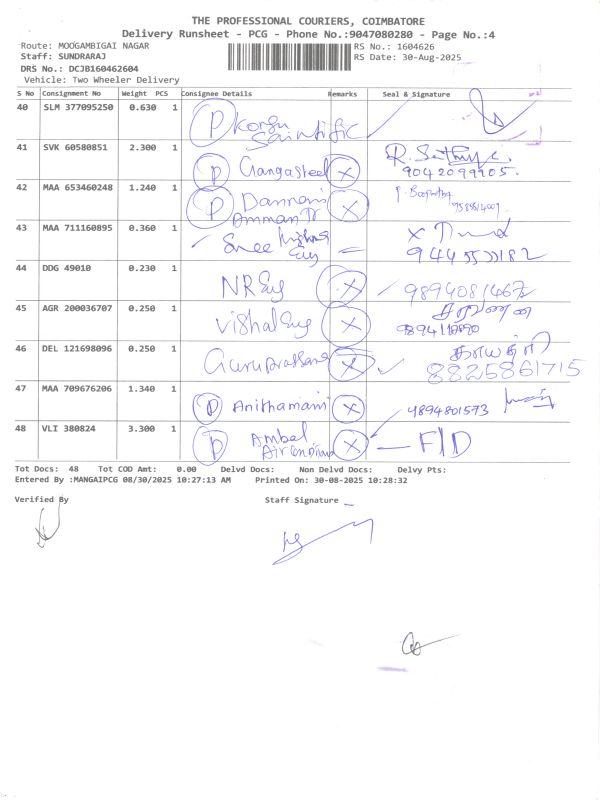 THE PROFESSIONAL COURIERS, COIMBATORE
Delivery Runsheet - PCG - Phone No.:9047080280 - Page No.:4
Route: MOOGAMBIGAI NAGAR RS No.: 1604626
Staff: SUNDRARAJ RS Date: 30-Aug-2025
DRS No.: DCJB160462604
Vehicle: Two Wheeler Delivery
S No Consignment No Weight PCS Consignee Details Remarks Seal & Signature
40 SLM 377095250 0.630 1 P Kongu Scintific
41 SVK 60580851 2.300 1 P Gangasteel X
9042099905.
42 MAA 653460248 1.240 1 P Dannari Amman Tr X
43 MAA 711160895 0.360 1 Sree Krishna Eng
44 DDG 49010 0.230 1 NR Eng X 9894081467
45 AGR 200036707 0.250 1 Vishal Eng X சரவணன்
46 DEL 121698096 0.250 1 Guruprassana X காயத்ரி
8825861715
47 MAA 709676206 1.340 1 P Anithamani X 4894801573
48 VLI 380824 3.300 1 P Ambal X F/D
Tot Docs: 48 Tot COD Amt: 0.00 Delvd Docs: Non Delvd Docs: Delvy Pts:
Entered By :MANGAIPCG 08/30/2025 10:27:13 AM Printed On: 30-08-2025 10:28:32
Verified By Staff Signature